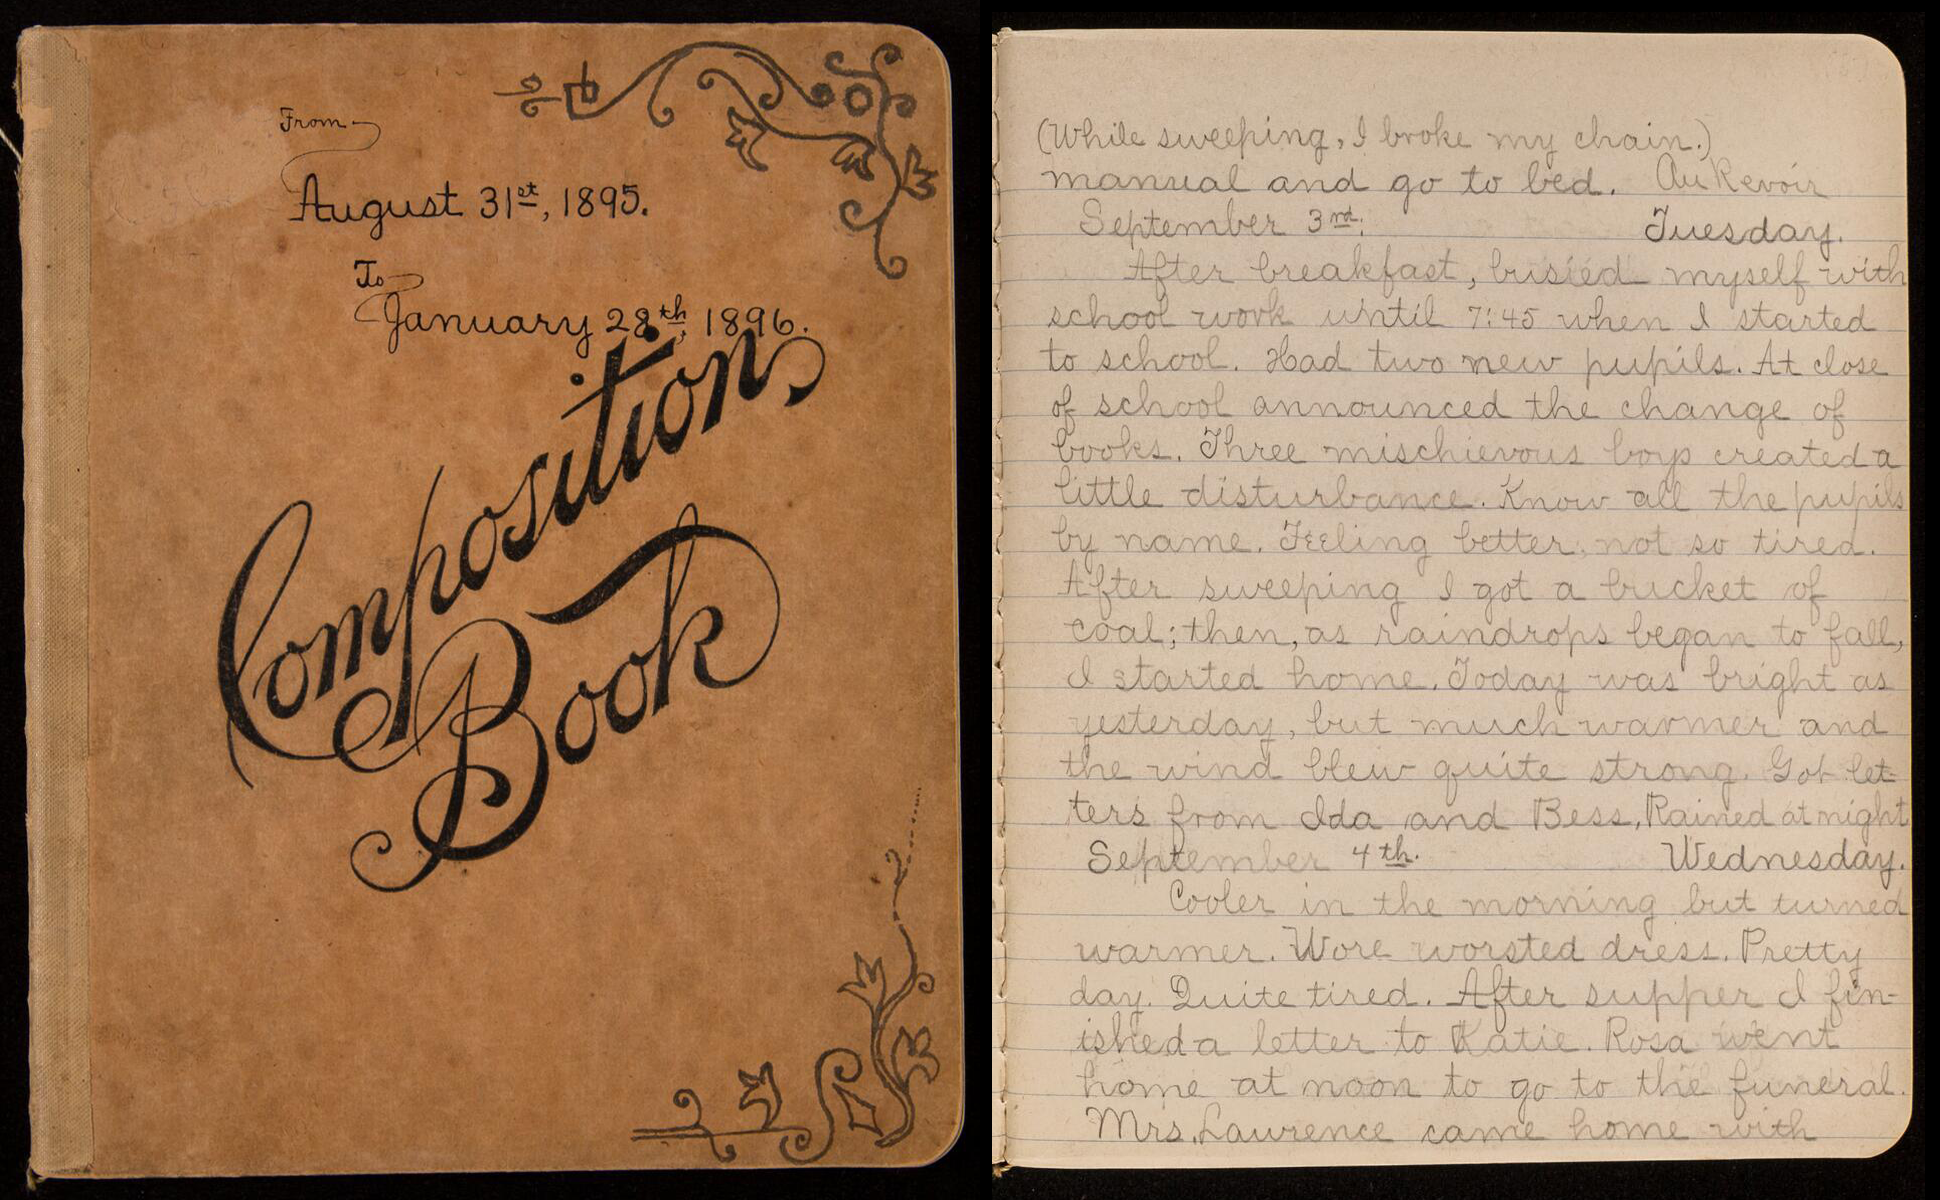 From
August 31st, 1895.
To
January 28th, 1896.
Composition
Book
(While sweeping, I broke my chain.)
manual and go to bed. Au Revoir
September 3rd. Tuesday.
After breakfast, busied myself with
school work until 7:45 when I started
to school. Had two new pupils. At close
of school announced the change of
books. Three mischievous boys created a
little disturbance. Know all the pupils
by name. Feeling better, not so tired.
After sweeping I got a bucket of
coal; then, as raindrops began to fall,
I started home. Today was bright as
yesterday, but much warmer and
the wind blew quite strong. Got let-
ters from Ida and Bess. Rained at night
September 4th. Wednesday.
Cooler in the morning but turned
warmer. Wore worsted dress. Pretty
day. Quite tired. After supper I fin-
ished a letter to Katie. Rosa went
home at noon to go to the funeral.
Mrs. Laurence came home with